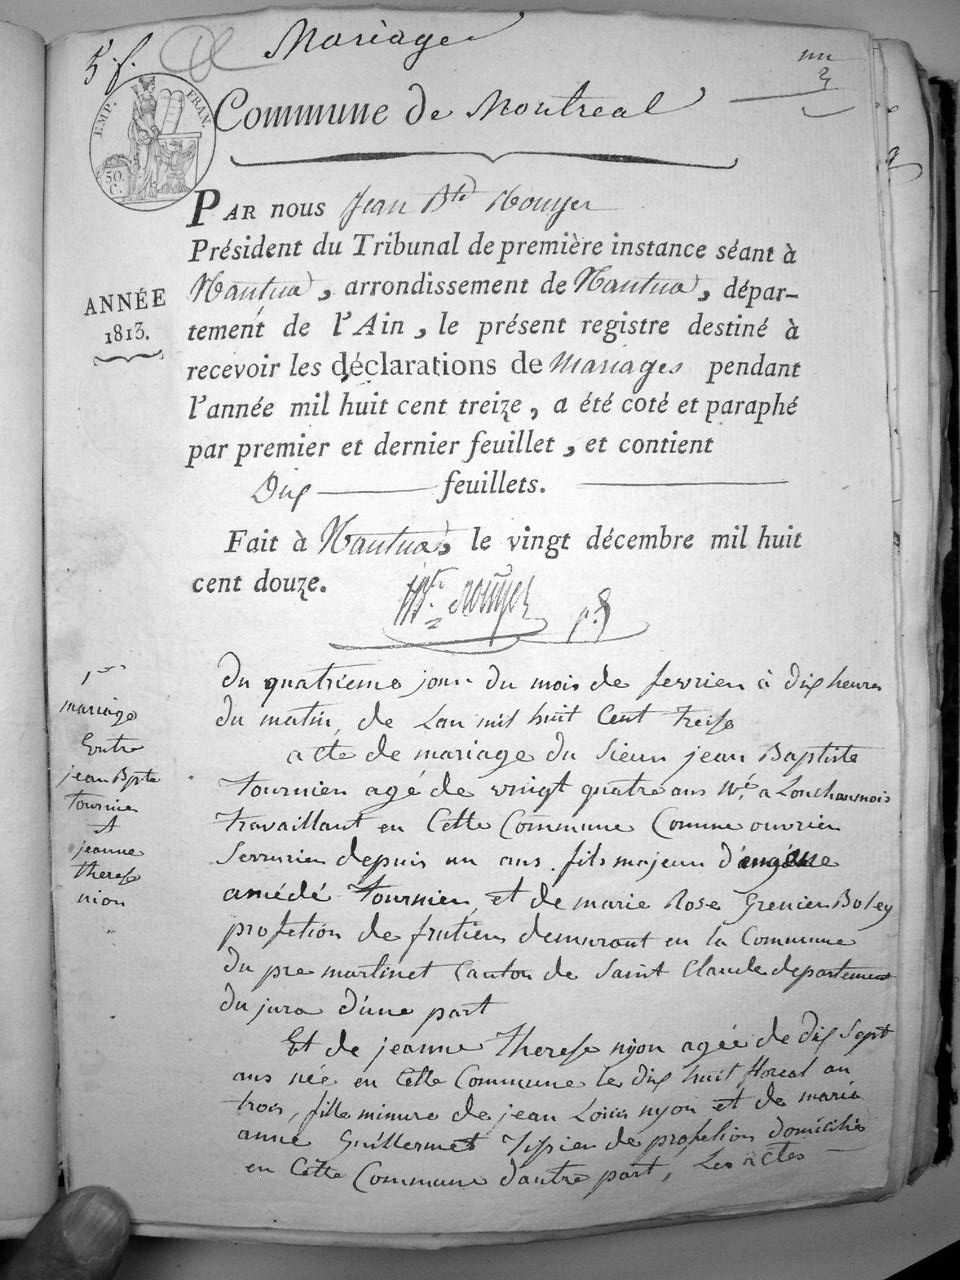 5 f.
Mariage
EMP. FRAN.
50. C.
Commune de Montreal
PAR nous Jean Bte Rouyer
Président du Tribunal de première instance séant à
Nantua, arrondissement de Nantua, dépar-
tement de l'Ain, le présent registre destiné à
recevoir les déclarations de Mariages pendant
l'année mil huit cent treize, a été coté et paraphé
par premier et dernier feuillet, et contient
Dix feuillets.
Fait à Nantua, le vingt décembre mil huit
cent douze.
ANNÉE
1813.
Bte. Rouyer
1er
mariage
Entre
jean Bpte
tournier
et
jeanne
therese
nion
Du quatrieme jour du mois de fevrier à dix heures
du matin, de Lan mil huit Cent treise
acte de mariage du Sieur jean Baptiste
tournier agé de vingt quatre ans né a Lonchaumois
travaillant en Cette Commune Comme ouvrier
Serrurier depuis un ans, fils majeur d'
amédé tournier, et de marie Rose Grenier Boley
profetion de frutier demurant en la Commune
du pre martinet Canton de Saint Claude departement
du jura d'une part
Et de jeanne therese nyon agée de dix Sept
ans née en Cette Commune le dix huit floreal an
trois, fille minure de jean Louis nyon et de marie
anne Guillermet tissier de profetion domiciliés
en Cette Commune d'autre part, Les actes